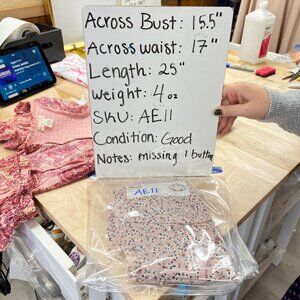 Across Bust: 15.5"
Across waist: 17"
Length: 25"
Weight: 4 oz
SKU: AE11
Condition: Good
Notes: missing 1 button
AE11